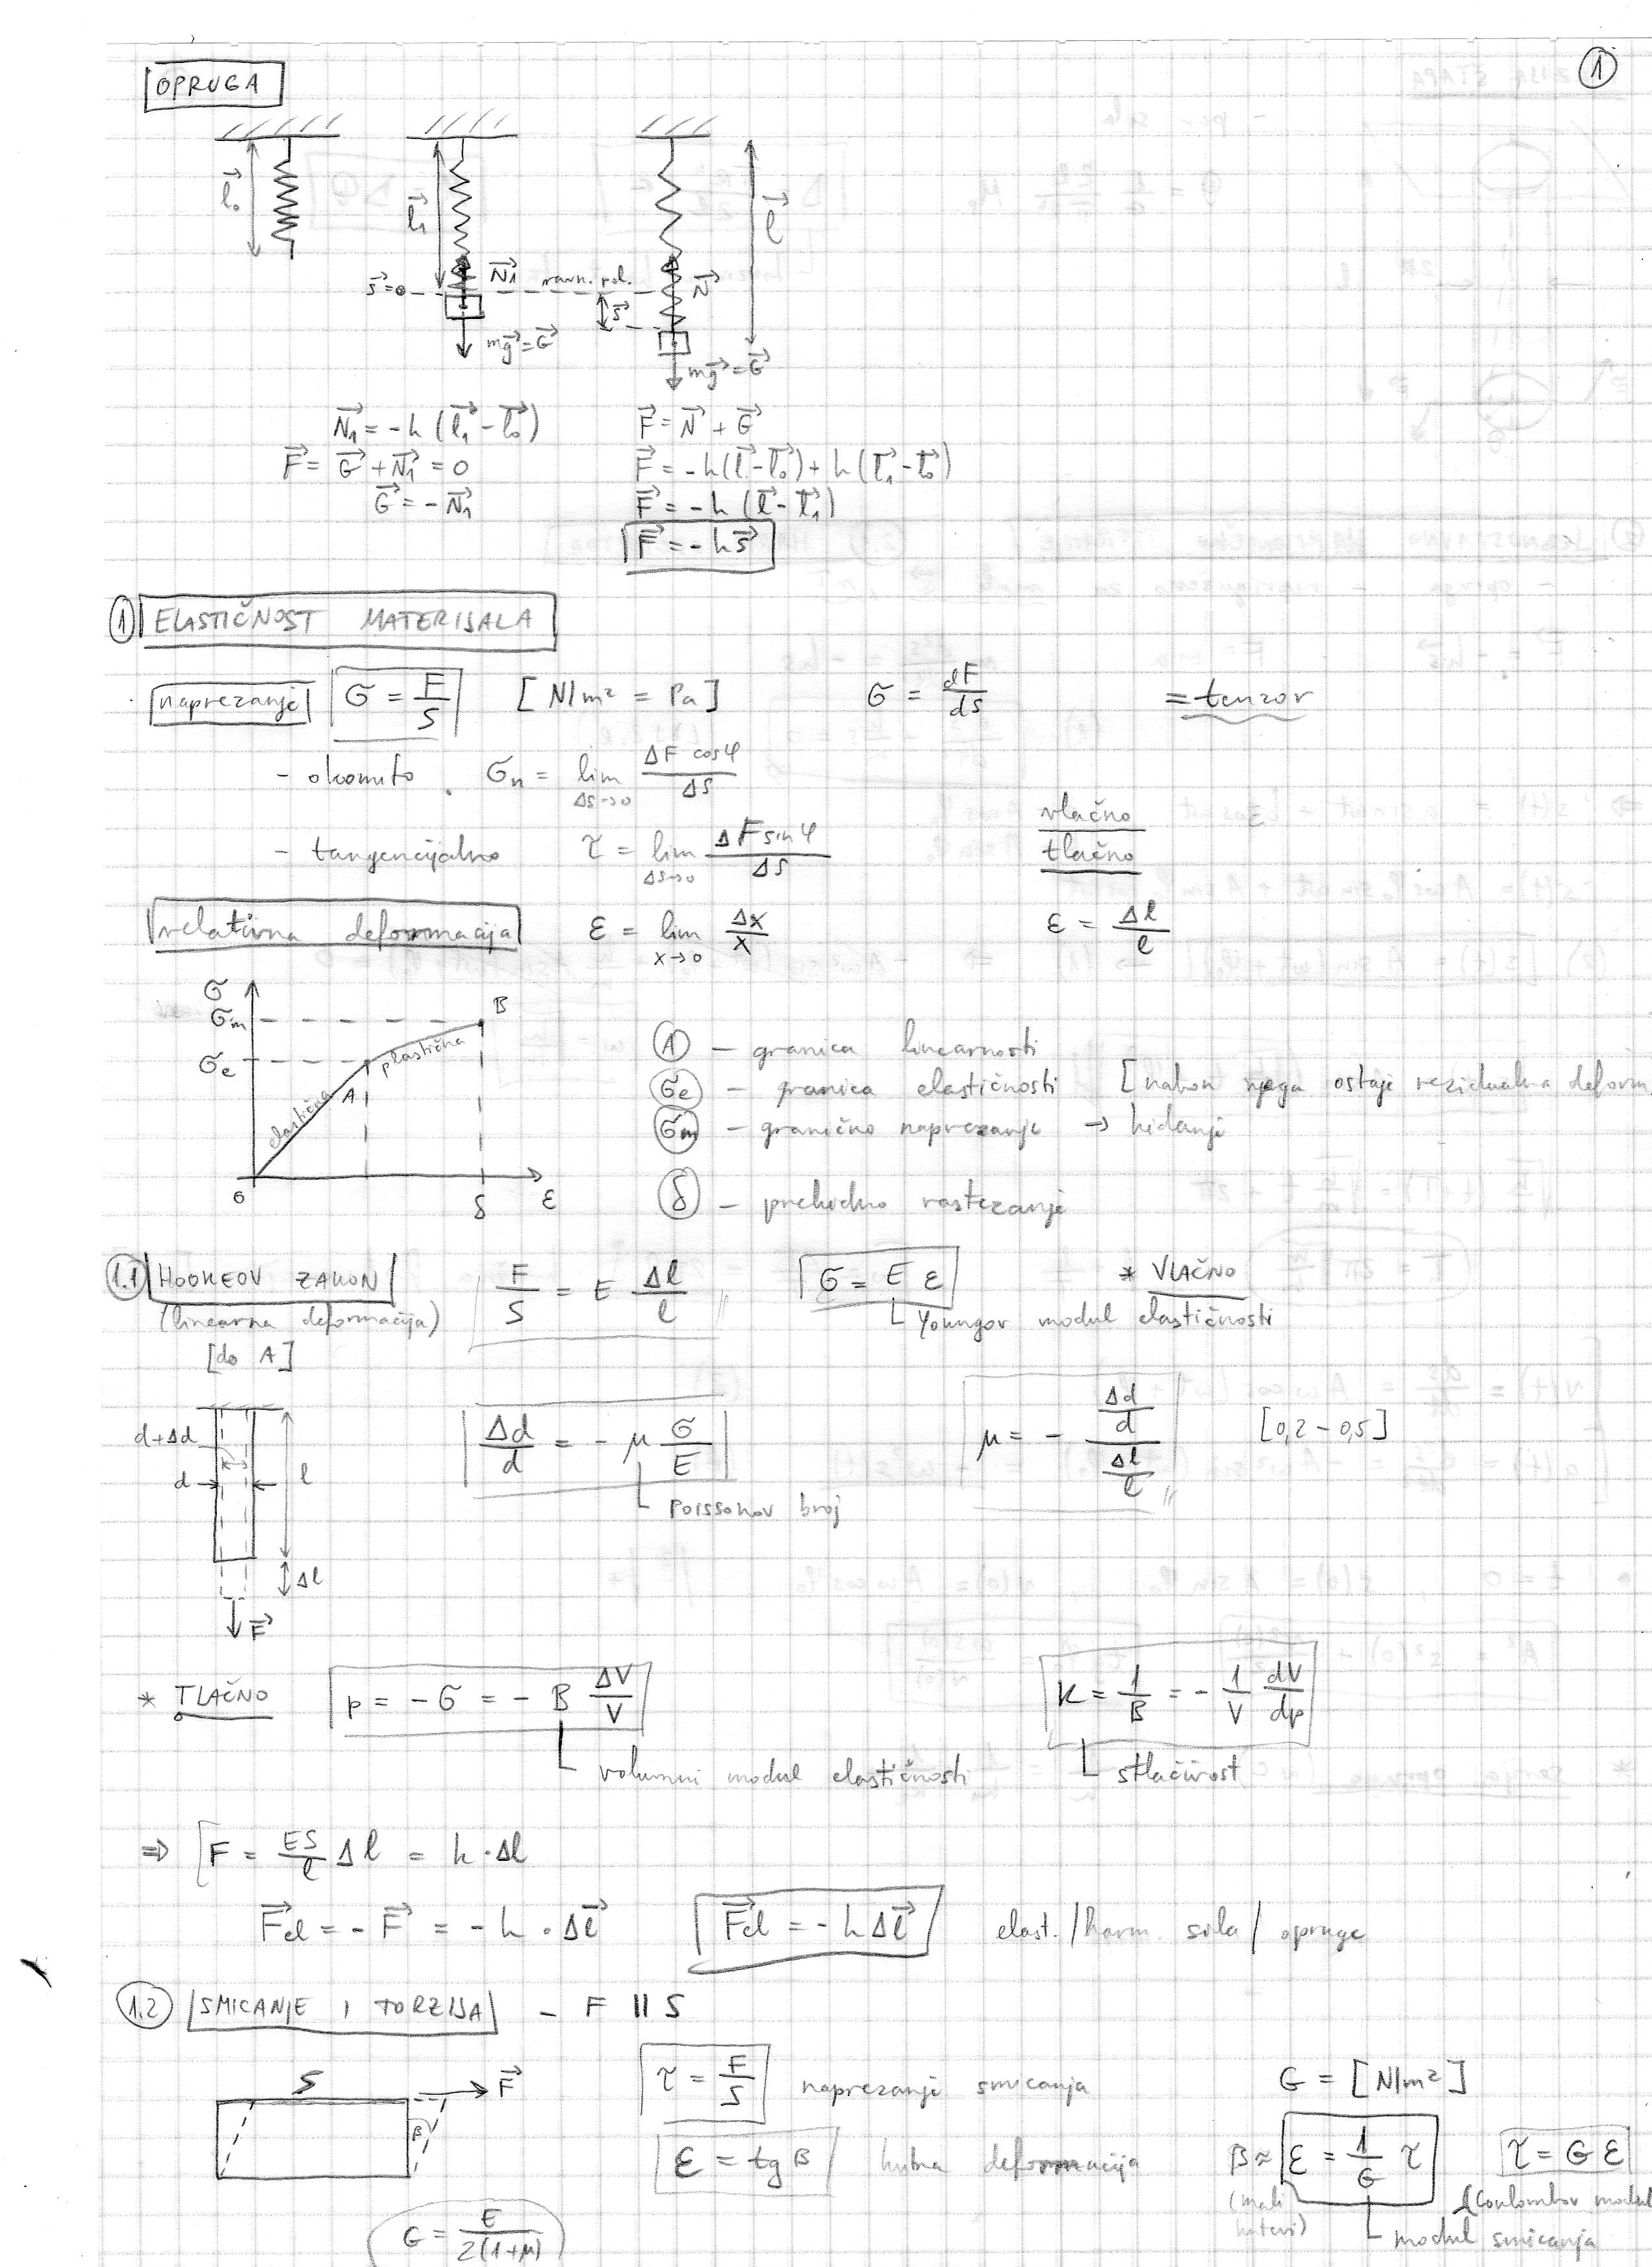 1
OPRUGA
l⃗₀ l⃗₁ l⃗
s⃗=0 N⃗₁ ravn. pol. s⃗ N⃗
mg⃗=G⃗ mg⃗=G⃗
N⃗₁ = -k (l⃗₁ - l⃗₀) F⃗ = N⃗ + G⃗
F⃗ = G⃗ + N⃗₁ = 0 F⃗ = -k(l⃗ - l⃗₀) + k(l⃗₁ - l⃗₀)
G⃗ = -N⃗₁ F⃗ = -k (l⃗ - l⃗₁)
F⃗ = -k s⃗
① ELASTIČNOST MATERIJALA
naprezanje σ = F/S [N/m² = Pa] σ = dF/dS = tenzor
- okomito σn = lim ΔS→0 ΔF cosφ / ΔS
- tangencijalno τ = lim ΔS→0 ΔF sinφ / ΔS vlačno / tlačno
relativna deformacija ε = lim x→0 Δx/x ε = Δl/l
σ σm σe elastična A plastična B 0 δ ε
① - granica linearnosti
σe - granica elastičnosti [nakon njega ostaje rezidualna deform.
σm - granično naprezanje → kidanje
δ - prekidno rastezanje
1.1 HOOKEOV ZAKON F/S = E Δl/l σ = E ε * VLAČNO
(linearna deformacija) Youngov modul elastičnosti
[do A]
d+Δd d l Δl F⃗
Δd/d = - μ σ/E μ = - (Δd/d)/(Δl/l) [0,2 - 0,5]
Poissonov broj
* TLAČNO p = -σ = - B ΔV/V K = 1/B = - 1/V dV/dp
volumni modul elastičnosti stlačivost
⇒ F = ES/l Δl = k·Δl
F⃗el = - F⃗ = -k · Δl⃗ F⃗el = -k Δl⃗ elast./harm. sila / opruge
1.2 SMICANJE I TORZIJA - F ∥ S
S F⃗ β
τ = F/S naprezanje smicanja G = [N/m²]
ε = tg β kutna deformacija β ≈ ε = 1/G τ τ = G ε
(mali kutevi) modul smicanja (Coulombov modul
G = E / 2(1+μ)